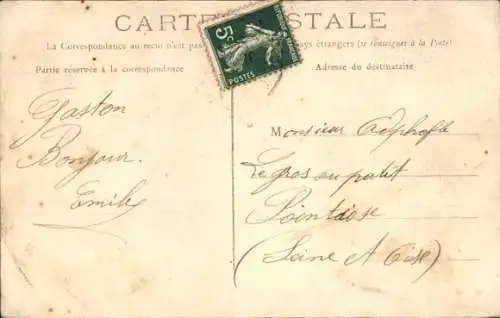 CARTE POSTALE
La Correspondance au recto n'est pas
pays étrangers (se renseigner à la Poste)
Partie réservée à la correspondance
Adresse du destinataire
5c
POSTES
Gaston
Bonjour.
Emile
Monsieur
Le gros au petit
Pointoise
(Seine et Oise)